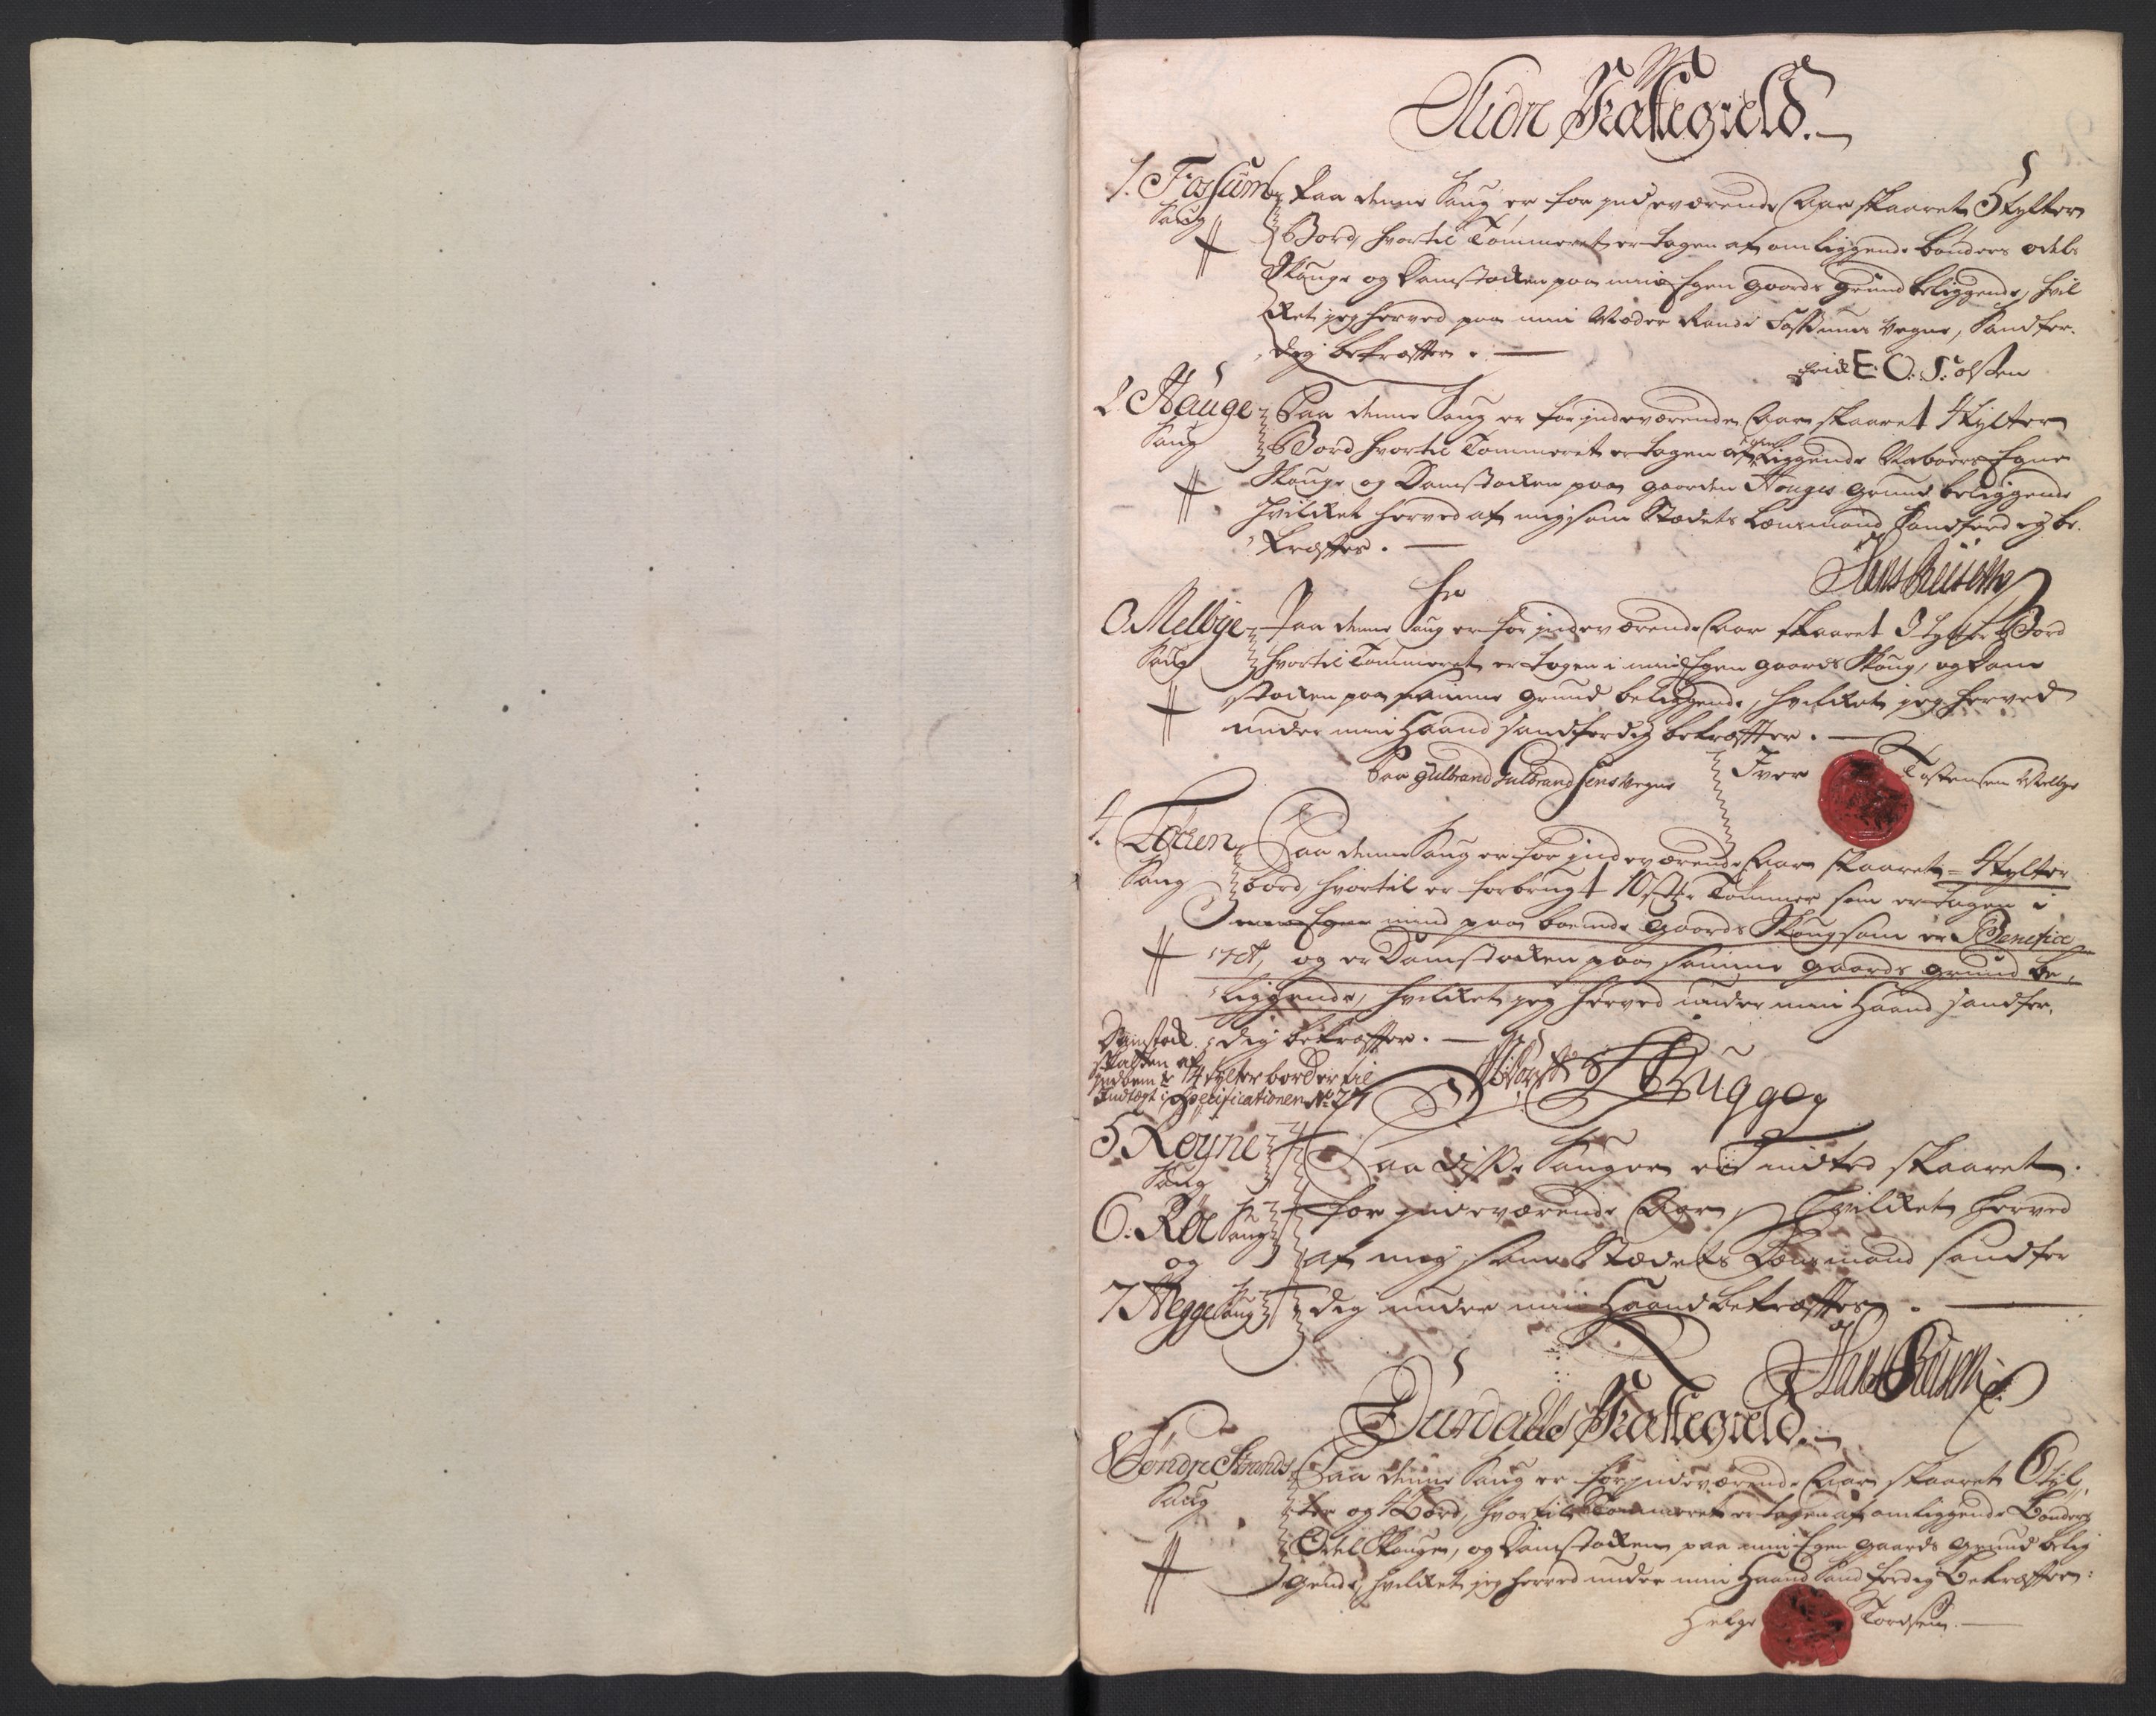 Slidre Præstegield.
1. Fossum Saug
Paa denne Saug er for indeværende Aar skaaret 5 tylter
Bord, hvortil Tømmeret er tagen af omliggende bønders odels
Skouge og Damstocken paa min Egen gaards grund beliggende, hvil
ket jeg herved paa min Moder Randi Fossums Vegne, Sandfer-
dig bekræfter.
E. O. S. olsen
2. Hauge Saug
Paa denne Saug er for indeværende Aar skaaret 4 tylter
Bord hvortil Tømmeret er tagen af omliggende Naboers Egne
Skouge og Damstocken paa gaarden Houges grund beliggende
hvilket herved af mig som Stædets Lensmand Sandferdig be-
kræftes.
Hans
3 Melbye Saug
Paa denne Saug er for indeværende Aar skaaret 3 tylter Bord
hvortil Tømmeret er tagen i min Egen gaards Skoug, og Dam
stocken paa samme grund beliggende, hvilket jeg herved
under min Haand sandferdig bekræfter.
Paa gulbrand gulbrandsens Vegne Iver Tostensen Melbye
4. Løcken Saug
Paa denne Saug er for indeværende Aar skaaret = 4 tylter
bord, hvortil er forbrugt 10 st. Tømmer som er tagen i
min paa boende gaards Skoug som er Benefice
ret, og er Damstocken paa samme gaards grund be-
liggende, hvilket jeg herved under min Haand sandfer-
dig bekræfter.
Damstock
skatten af
4 tylter bord er til
Indtægt i Specificationen No 27
Bugge
5 Røyne Saug
Paa disse Sauger er indted skaaret
6. Røe Saug
for indeværende Aar, hvilket herved
og
af mig som Stædets Lensmand sandfer
7 Hegge Saug
dig under min Haand bekræftes.
Hans
Vurdahls Præstegield.
8 Søndre Strands Saug
Paa denne Saug er for indeværende Aar skaaret 6 tyl
ter og 4 Bord, hvortil Tømmeret er tagen af omliggende Bønders
Odel Skouger, og Damstocken paa min Egen gaards grund belig
gende, hvilket jeg herved under min Haand Sandferdig Bekræfter:
Helge Tordsen.